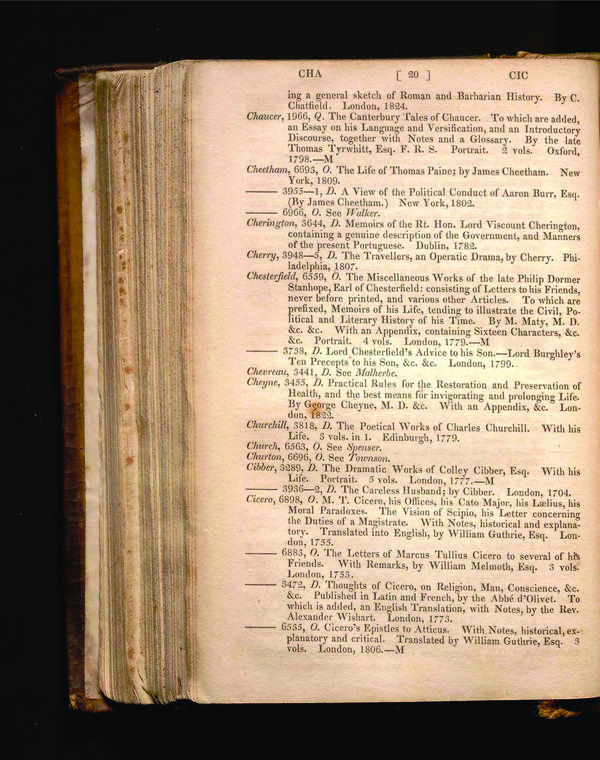 CHA [ 20 ] CIC
ing a general sketch of Roman and Barbarian History. By C.
Chatfield. London, 1824.
Chaucer, 1966, Q. The Canterbury Tales of Chaucer. To which are added,
an Essay on his Language and Versification, and an Introductory
Discourse, together with Notes and a Glossary. By the late
Thomas Tyrwhitt, Esq. F. R. S. Portrait. 2 vols. Oxford,
1798.—M
Cheetham, 6693, O. The Life of Thomas Paine; by James Cheetham. New
York, 1809.
—— 3955—1, D. A View of the Political Conduct of Aaron Burr, Esq.
(By James Cheetham.) New York, 1802.
—— 6966, O. See Walker.
Cherington, 3644, D. Memoirs of the Rt. Hon. Lord Viscount Cherington,
containing a genuine description of the Government, and Manners
of the present Portuguese. Dublin, 1782.
Cherry, 3948—5, D. The Travellers, an Operatic Drama, by Cherry. Phi-
ladelphia, 1807.
Chesterfield, 6559, O. The Miscellaneous Works of the late Philip Dormer
Stanhope, Earl of Chesterfield: consisting of Letters to his Friends,
never before printed, and various other Articles. To which are
prefixed, Memoirs of his Life, tending to illustrate the Civil, Po-
litical and Literary History of his Time. By M. Maty, M. D.
&c. &c. With an Appendix, containing Sixteen Characters, &c.
&c. Portrait. 4 vols. London, 1779.—M
—— 3758, D. Lord Chesterfield's Advice to his Son.—Lord Burghley's
Ten Precepts to his Son, &c. &c. London, 1799.
Chevreau, 3441, D. See Malherbe.
Cheyne, 3455, D. Practical Rules for the Restoration and Preservation of
Health, and the best means for invigorating and prolonging Life.
By George Cheyne, M. D. &c. With an Appendix, &c. Lon-
don, 1822.
Churchill, 3818, D. The Poetical Works of Charles Churchill. With his
Life. 3 vols. in 1. Edinburgh, 1779.
Church, 6563, O. See Spenser.
Churton, 6696, O. See Townson.
Cibber, 3289, D. The Dramatic Works of Colley Cibber, Esq. With his
Life. Portrait. 5 vols. London, 1777.—M
—— 3936—2, D. The Careless Husband; by Cibber. London, 1704.
Cicero, 6898, O. M. T. Cicero, his Offices, his Cato Major, his Lælius, his
Moral Paradoxes. The Vision of Scipio, his Letter concerning
the Duties of a Magistrate. With Notes, historical and explana-
tory. Translated into English, by William Guthrie, Esq. Lon-
don, 1755.
—— 6883, O. The Letters of Marcus Tullius Cicero to several of his
Friends. With Remarks, by William Melmoth, Esq. 3 vols.
London, 1753.
—— 3472, D. Thoughts of Cicero, on Religion, Man, Conscience, &c.
&c. Published in Latin and French, by the Abbé d'Olivet. To
which is added, an English Translation, with Notes, by the Rev.
Alexander Wishart. London, 1773.
—— 6535, O. Cicero's Epistles to Atticus. With Notes, historical, ex-
planatory and critical. Translated by William Guthrie, Esq. 3
vols. London, 1806.—M